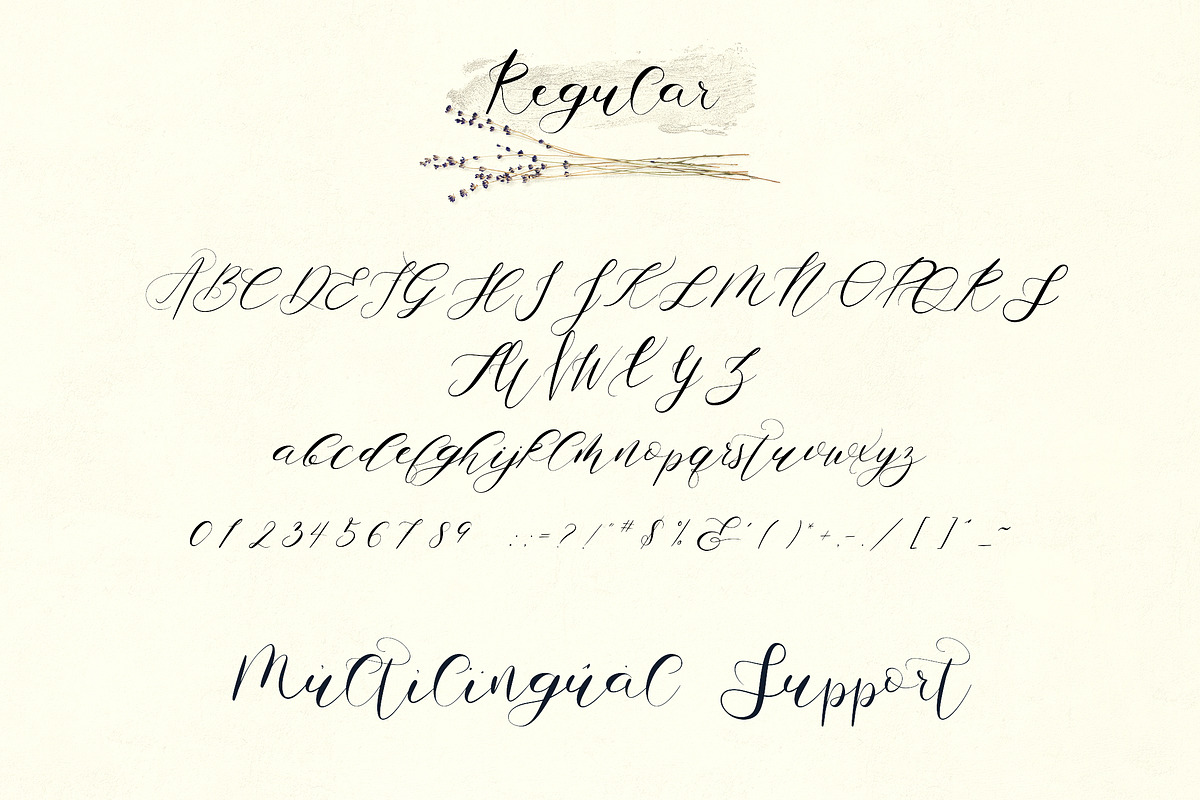 Regular
A B C D E F G H I J K L M N O P Q R S
T U V W X Y Z
a b c d e f g h i j k l m n o p q r s t u v w x y z
0 1 2 3 4 5 6 7 8 9 : ; = ? ! " # $ % & ' ( ) * + , - . / [ ] ^ _ ~
Multilingual Support